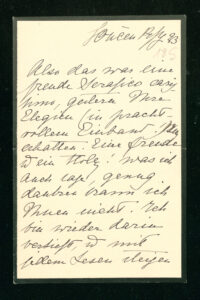 Also das war eine
Freude Serafico caris
simo, gestern Ihre
Elegien (in pracht-
vollem Einband) zu
erhalten! Eine Freude
u ein Stolz! was ich
auch sage, genug
danken kann ich
Ihnen nicht. Ich
bin wieder darin
vertieft u mit
jedem Lesen steigen